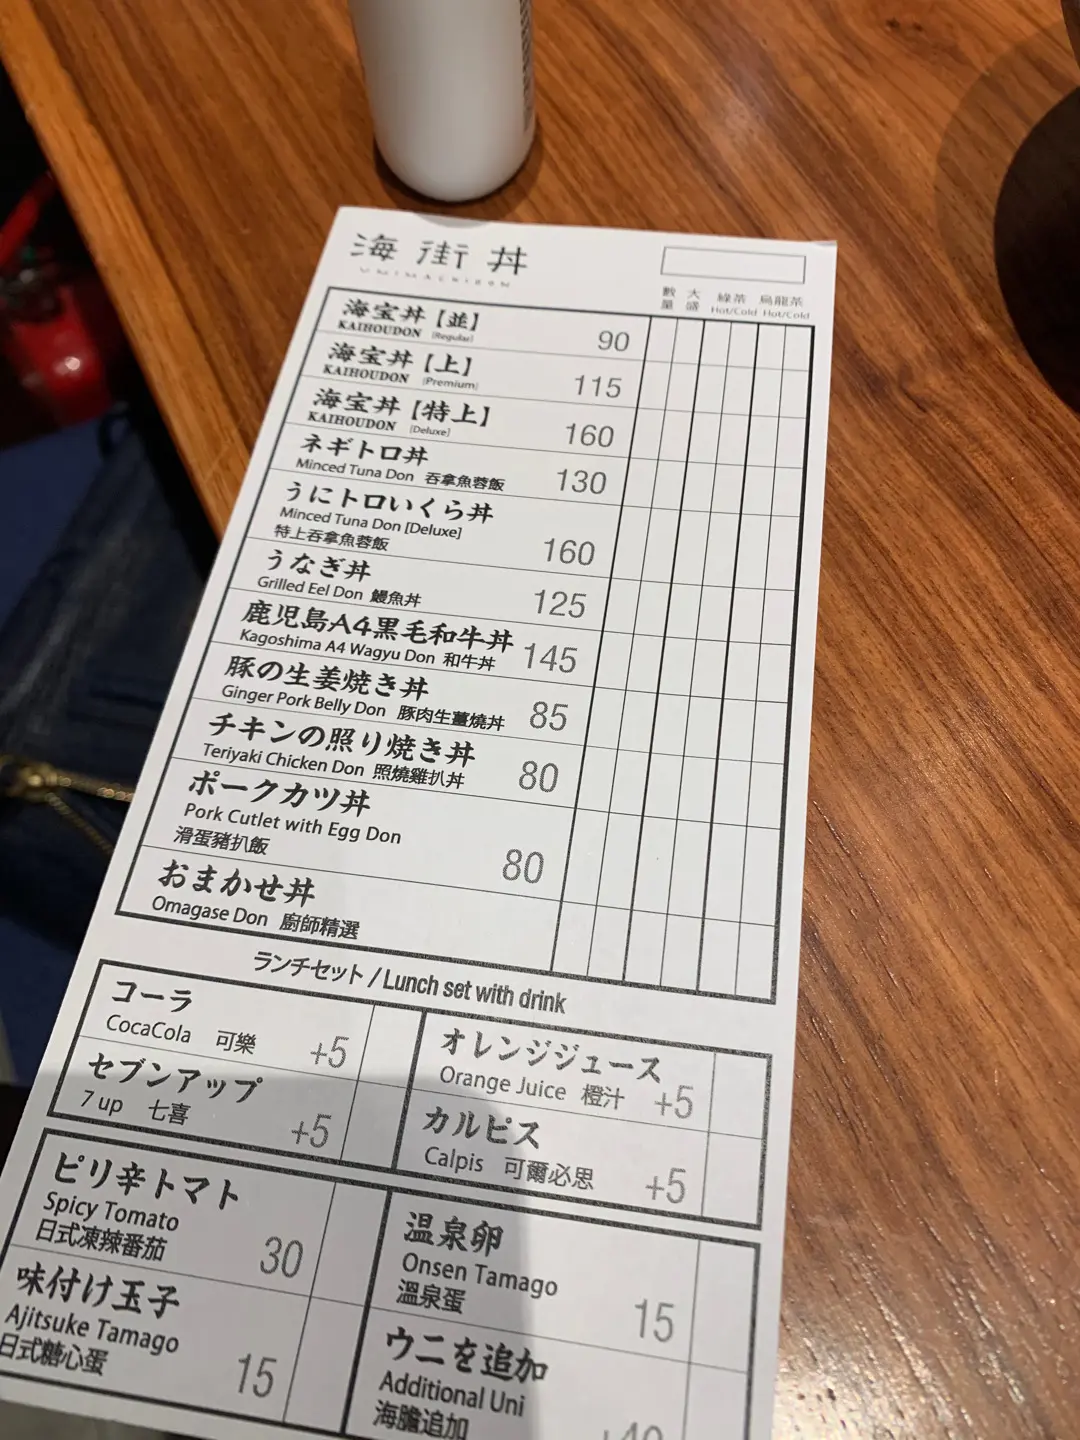 海街丼
UNIMACHIDON
數量 大盛 綠茶 Hot/Cold 烏龍茶 Hot/Cold
海宝丼【並】
KAIHOUDON [Regular] 90
海宝丼【上】
KAIHOUDON [Premium] 115
海宝丼【特上】
KAIHOUDON [Deluxe] 160
ネギトロ丼
Minced Tuna Don 吞拿魚蓉飯 130
うにトロいくら丼
Minced Tuna Don [Deluxe]
特上吞拿魚蓉飯 160
うなぎ丼
Grilled Eel Don 鰻魚丼 125
鹿児島A4黒毛和牛丼
Kagoshima A4 Wagyu Don 和牛丼 145
豚の生姜焼き丼
Ginger Pork Belly Don 豚肉生薑燒丼 85
チキンの照り焼き丼
Teriyaki Chicken Don 照燒雞扒丼 80
ポークカツ丼
Pork Cutlet with Egg Don
滑蛋豬扒飯 80
おまかせ丼
Omagase Don 廚師精選
ランチセット / Lunch set with drink
コーラ
CocaCola 可樂 +5
セブンアップ
7 up 七喜 +5
オレンジジュース
Orange Juice 橙汁 +5
カルピス
Calpis 可爾必思 +5
ピリ辛トマト
Spicy Tomato
日式凍辣番茄 30
味付け玉子
Ajitsuke Tamago
日式糖心蛋 15
温泉卵
Onsen Tamago
溫泉蛋 15
ウニを追加
Additional Uni
海膽追加 +40